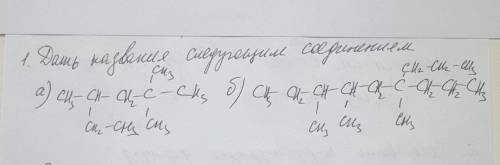 1. Дать названия следующим соединениям
CH₃ CH₂-CH₂-CH₃
а) CH₃-CH-CH₂-C-CH₃ б) CH₃-CH₂-CH-CH-CH₂-C-CH₂-CH₂-CH₃
CH₂-CH₃ CH₃ CH₃ CH₃ CH₃